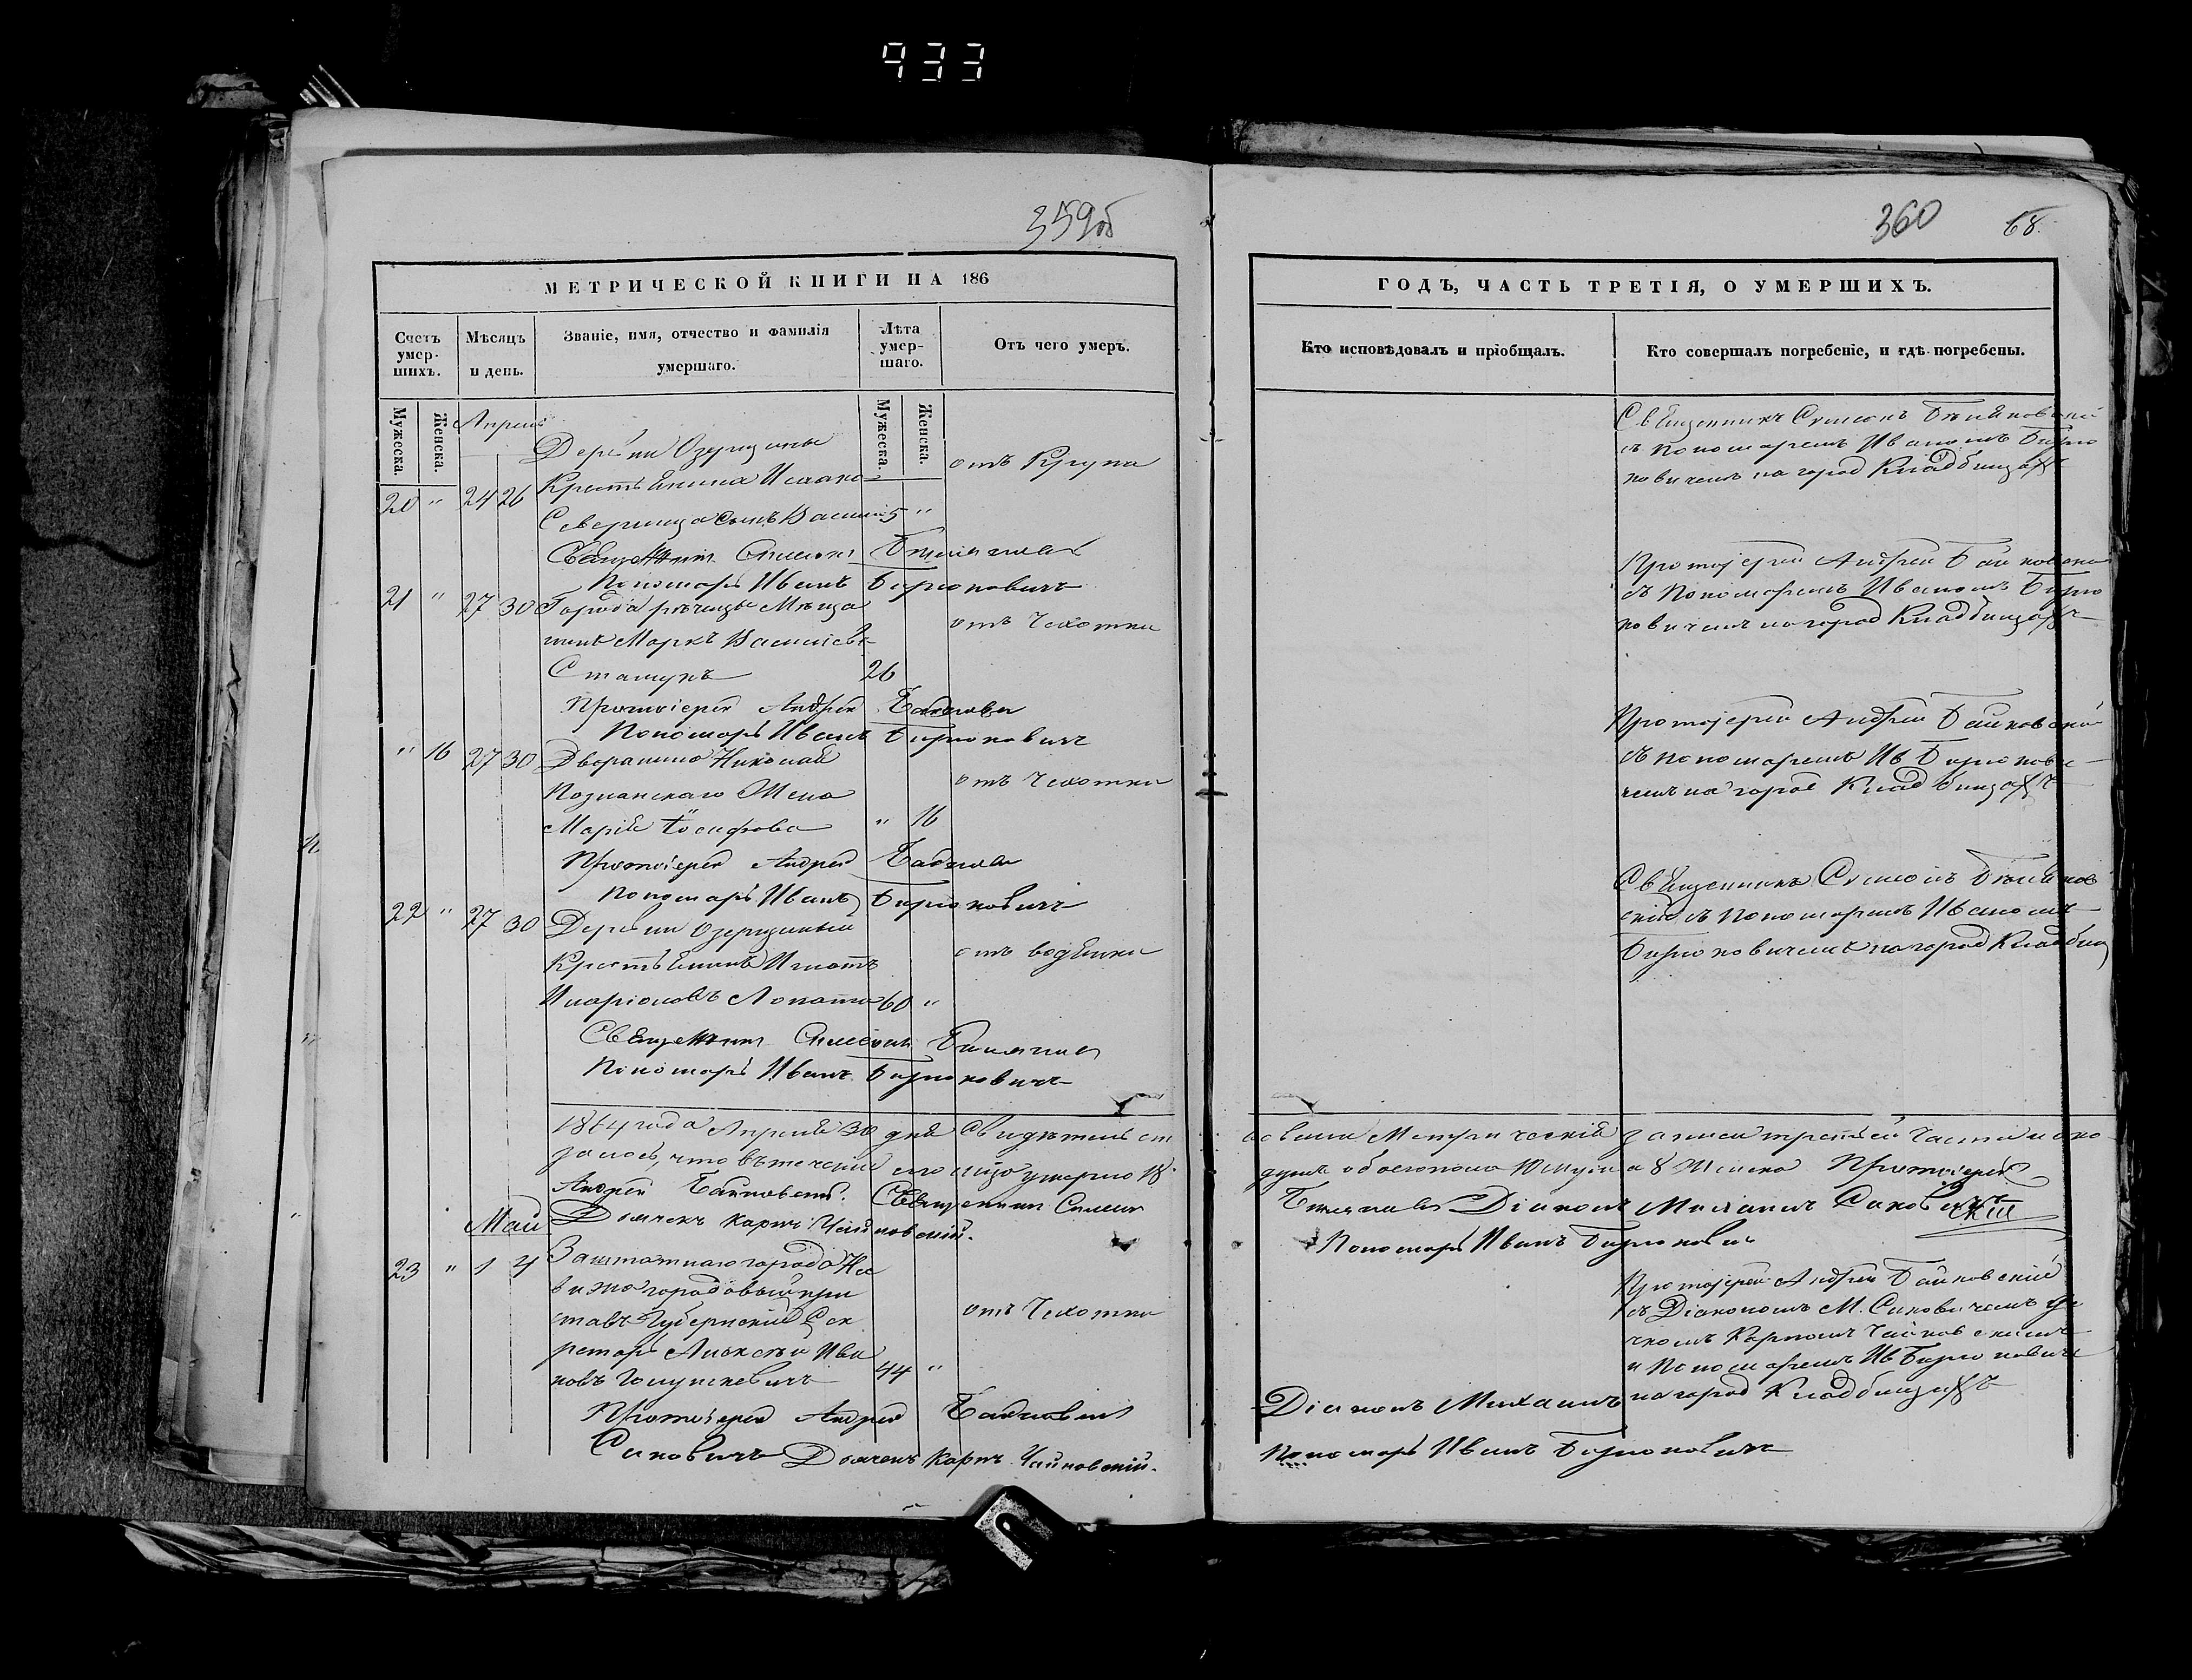 933
359об
МЕТРИЧЕСКОЙ КНИГИ НА 186
Счетъ умер-шихъ.
Мѣсяцъ и день.
Званіе, имя, отчество и фамилія умершаго.
Лѣта умер-шаго.
Отъ чего умеръ.
Мужеска.
Женска.
Мужеска.
Женска.
Апрель
Деревни Озерщины
20 " 24 26 Крестьянина Исаака
Северинца сынъ Василій 5 "
отъ Крупа
Священникъ Симеонъ
Пономарь Иванъ Бирюковичъ
21 " 27 30 Города рѣчицы Мѣща
нинъ Маркъ Василіевъ
26
отъ Чахотки
Протоіерей Андрей
Пономарь Иванъ Бирюковичъ
" 16 27 30 Дворянина Николая
Познанскаго Жена
Марія Іосифова " 16
отъ Чахотки
Протоіерей Андрей
Пономарь Иванъ Бирюковичъ
22 " 27 30 Деревни Озерщины
Крестьянинъ Игнатъ
Иларіоновъ Лопата 60 "
отъ водянки
Священникъ Симеонъ
Пономарь Иванъ Бирюковичъ
1864 года Апреля 30 дня Свидѣтельст
Андрей Байковскій. Священникъ Симеон
Дьячекъ Карпъ Чайковскій.
Май
23 " 1 4 Заштатнаго города Не
вижа городовый при
ставъ Губернскій Сек
ретарь Алексѣй Ива
новъ 44 "
отъ Чахотки
Протоіерей Андрей Байковскій
Саковичъ Дьячекъ Карпъ Чайковскій.
360
68.
ГОДЪ, ЧАСТЬ ТРЕТІЯ, О УМЕРШИХЪ.
Кто исповѣдовалъ и пріобщалъ.
Кто совершалъ погребеніе, и гдѣ погребены.
Священникъ Симеонъ
съ Пономаремъ Иваномъ Бирю
ковичемъ на город Кладбищахъ
Протоіерей Андрей Байковскій
съ Пономаремъ Иваномъ Бирю
ковичемъ на город Кладбищахъ
Протоіерей Андрей Байковскій
съ пономаремъ Ив Бирюкови
чемъ на город Кладбищахъ
Священникъ Симеонъ
скій съ Пономаремъ Иваномъ
Бирюковичемъ на город Кладбищ
Діаконъ Михаилъ Саковичъ
Пономарь Иванъ Бирюкович
Протоіерей Андрей Байковскій
съ Діакономъ М. Саковичемъ дья
чкомъ Карпомъ Чайковскимъ
и Пономаремъ Ив Бирюковиче
на город Кладбищахъ
Діаконъ Михаилъ
Пономарь Иванъ Бирюковичъ